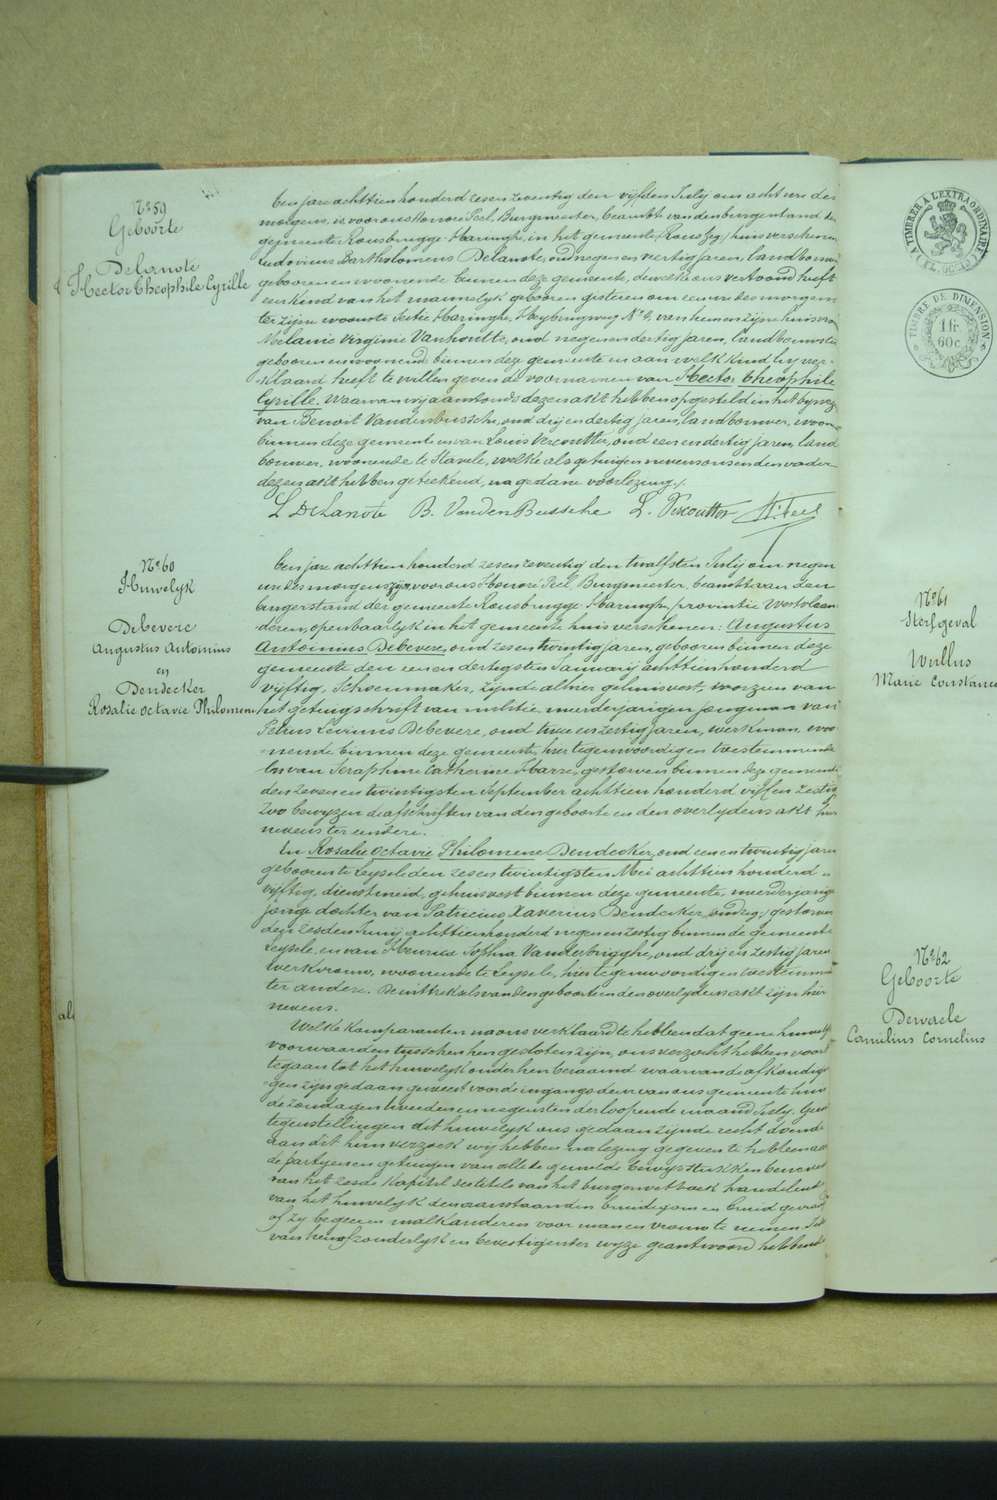 N° 59
Geboorte
Delanote
Hector Theophile Cyrille
Ten jare achttien honderd zes en zeventig den vijfden July om acht ure des
morgens, is voor ons Honoré Feel, Burgmeester, beambte van den burgerstand der
gemeente Rousbrugge-Haringhe, in het gemeente huis verschenen
Ludovicus Bartholomeus Delanote, oud negen en veertig jaren, landbouwer
geboren en woonende binnen deze gemeente, dewelke ons vertoond heeft
een kind van het mannelyk geboren gisteren om een ure des morgens
ter zijne woonste Sectie Haringhe, Heybrugweg N° 4, van hem en zijne huisvrouw
Melanie Virginie Vanhoutte, oud negen en dertig jaren, landbouwster
geboren en woonende binnen deze gemeente en aan welk kind hy ver-
klaard heeft te willen geven de voornamen van Hector Théophile
Cyrille. Waarvan wy aanstonds dezen akt hebben opgesteld in het bywezen
van Benoit Vandenbussche, oud drij en dertig jaren, landbouwer, woonende
binnen deze gemeente en van Louis Vercoutter, oud een en dertig jaren, land
bouwer, woonende te Stavele, welke als getuigen nevens ons en den vader
dezen akt hebben geteekend, na gedane voorlezing.
L Delanote B. VandenBussche L. Vercoutter H. Feel
N° 60
Huwelyk
Debevere
Augustus Antonius
en
Dendecker
Rosalie Octavie Philomene
Ten jare achttien honderd zes en zeventig den twalfsten July om negen
ure des morgens zijn voor ons Honoré Feel, Burgmeester, beambte van den
burgerstand der gemeente Rousbrugge Haringhe, provintie Westvlaan
deren, openbaarlyk in het gemeente huis verschenen: Augustus
Antonius Debevere, oud zes en twintig jaren, geboren binnen deze
gemeente den een en dertigsten January achttien honderd
vijftig, Schoenmaker, zijnde alhier gehuisvest, voorzien van
het getuigschrift van militie, meerderjarigen jongman van
Petrus Levinus Debevere, oud twee en zestig jaren, werkman, woo
nende binnen deze gemeente, hier tegenwoordig en toestemmende
en van Seraphine Catherine Harre, gestorven binnen deze gemeente
den zeven en twintigsten September achttien honderd vijf en zestig
zoo bewyzen de afschriften van den geboorte en den overlydens akt hier
nevens ter eindere.
En Rosalie Octavie Philomene Dendecker, oud een en twintig jaren
geboren te Leysele den zes en twintigsten Mei achttien honderd
vijftig, dienstmeid, gehuisvest binnen deze gemeente, meerderjarige
jonge dochter van Patricius Xaverius Dendecker, gestorven
den zesden Juny achttien honderd negen en zestig binnen de gemeente
Leysele, en van Henrica Sophia Vanderbrigghe, oud drij en zestig jaren
werkvrouw, woonende te Leysele, hier tegenwoordig en toestemmende
ter andere. De uittreksels van den geboorte en den overlydens akt zijn hier
nevens.
Welke komparanten na ons verklaard te hebben dat geene huwelyks
voorwaarden tusschen hen gesloten zijn, ons verzocht hebben voort
tegaan tot het huwelyk onder hen beraamd waarvan de afkondigin
gen zijn gedaan geweest voor de ingangs deur van ons gemeente huis
de zondagen tweeden en negensten der loopende maand July. Geene
tegenstellingen dit huwelyk ons gedaan zijnde recht doende
aan dit hun verzoek wij hebben na lezing gegeven te hebben aan
de partyen en getuigen van alle te gemelde bewysstukken benevens
van het zesde kapitel des titels van het burgerwetboek handelende
van het huwelyk den aanstaanden bruidegom en bruid gevraagd
of zy begeeren malkanderen voor man en vrouw te nemen. Elk
van hen afzonderlyk en bevestigender wyze geantwoord hebbende
als
A TIMBRER A L'EXTRAORDINAIRE
TIMBRE DE DIMENSION
1 fr.
60 c.
N° 61
Sterfgeval
Wullus
Marie Constance
N° 62
Geboorte
Dewaele
Camilius Cornelius